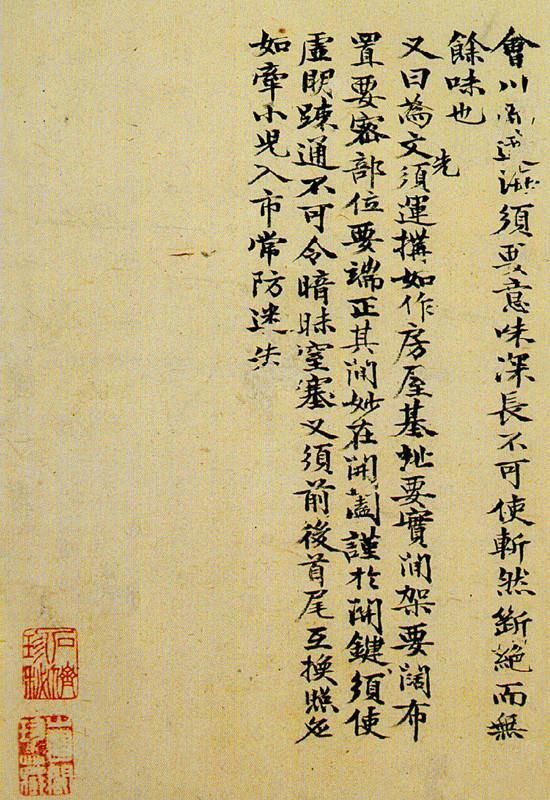 會川須要意味深長不可使斬然斷絕而無
餘味也
又曰為文先須運搆如作房屋基址要實間架要闊布
置要密部位要端正其間妙在開闔謹於關鍵須使
虛明踈通不可令暗昧窒塞又須前後首尾互換照
如牽小兒入市常防迷失